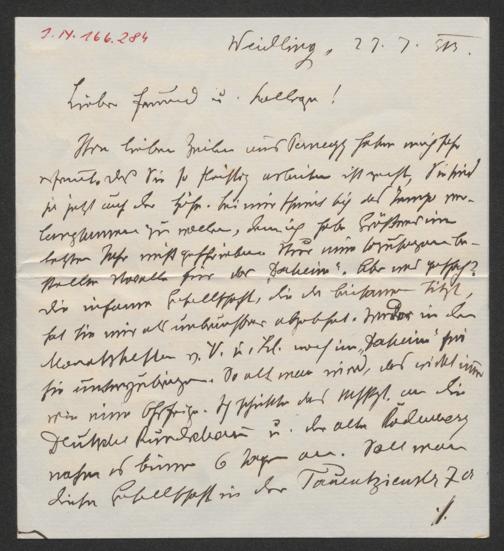 J.N. 166.284
Weidling, 27. 7. 913.
Lieber Freund u. Kollege!
Ihre lieben Zeilen aus Pernegg haben mich sehr
erfreut, daß Sie so fleißig arbeiten ist recht, Sie sind
ja jetzt auf der Höhe. Bei mir scheint bis das Tempo ver-
langsamen zu wollen, denn ich habe Größeres im
letzten Jahr nicht geschrieben. Nur eine be-
stellte Novelle für das "Daheim". Aber was geschah?
Die infame Gesellschaft, die da sitzt,
hat sie mir als unbrauchbar abgelehnt. Weder in den
Monatsheften v. V. u. Kl. noch im "Daheim" sei
sie unterzubringen. So alt man wird, das wirkt immer
wie eine Ohrfeige. Ich schickte das Mskpt. an die
Deutsche Rundschau u. der alte Rodenberg
nahm es binnen 6 Tagen an. Soll man
diese Gesellschaft in der Tauentzienstr 7a
./.